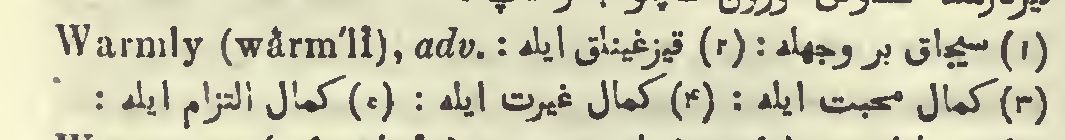 Warmly (wårm'lî), adv. : (۱) سیجاق بر وجهله : (۲) قیزغینلق ایله :
(۳) کمال محبت ایله : (۴) کمال غیرت ایله : (۵) کمال التزام ایله :